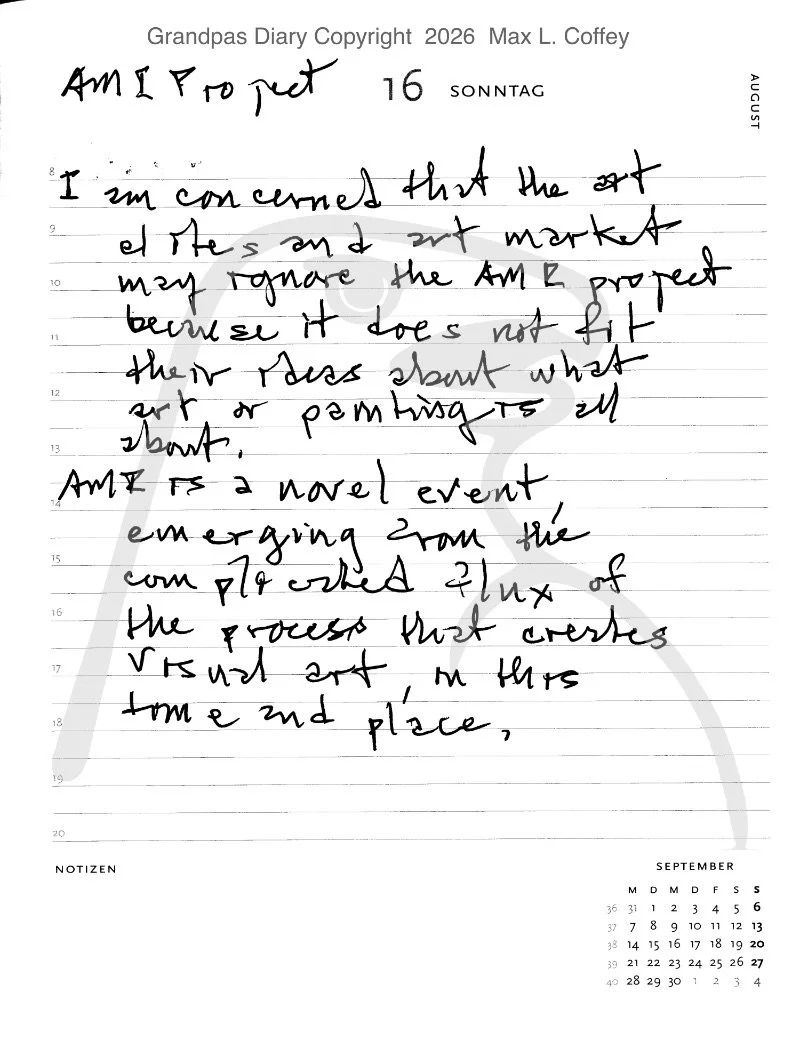 Grandpas Diary Copyright 2026 Max L. Coffey
AMI Project 16 SONNTAG
AUGUST
8
I am concerned that the art
9
elites and art market
10
may ignore the AMI project
11
because it does not fit
their ideas about what
12
art or painting is all
13
about.
AMI is a novel event,
14
emerging from the
15
complicated flux of
16
the process that creates
17
visual art, in this
18
time and place,
19
20
NOTIZEN
SEPTEMBER
M D M D F S S
36 31 1 2 3 4 5 6
37 7 8 9 10 11 12 13
38 14 15 16 17 18 19 20
39 21 22 23 24 25 26 27
40 28 29 30 1 2 3 4